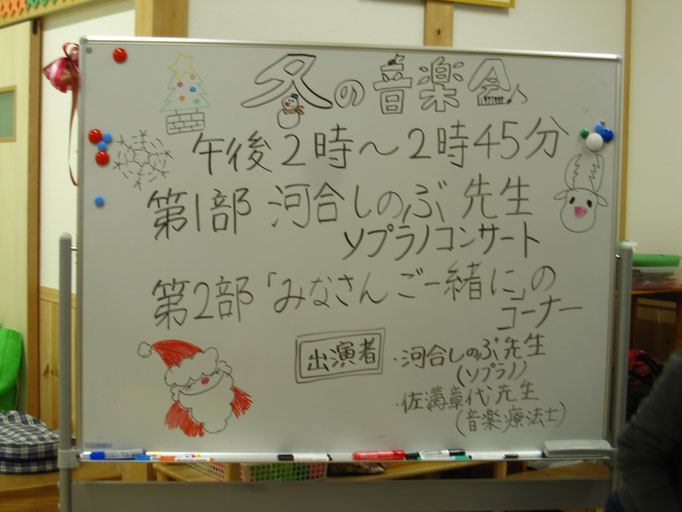 冬の音楽会
午後2時～2時45分
第1部 河合しのぶ 先生
ソプラノコンサート
第2部「みなさんご一緒に」の
コーナー
出演者 ・河合しのぶ先生
(ソプラノ)
・佐溝章代先生
(音楽療法士)